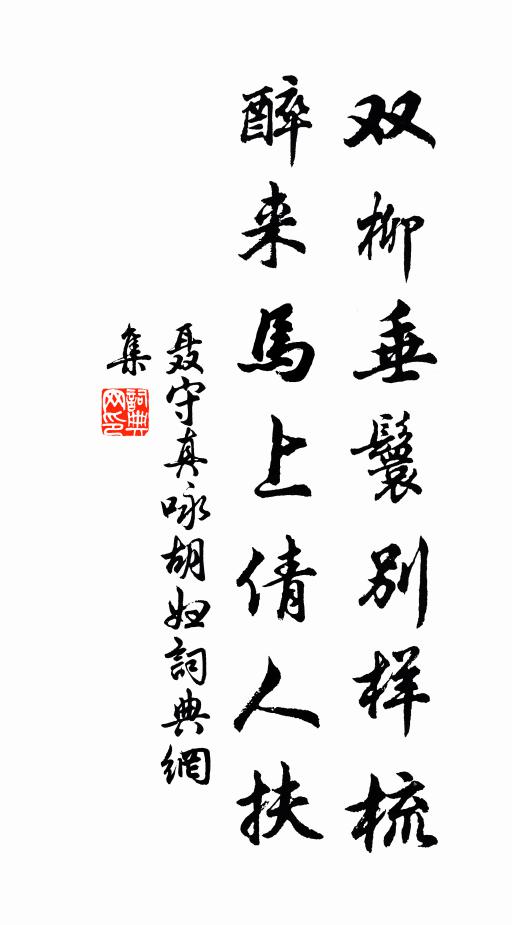 双柳垂鬟别样梳
醉来馬上倩人扶
聂守真咏胡妇詞典網
集
詞典
网印